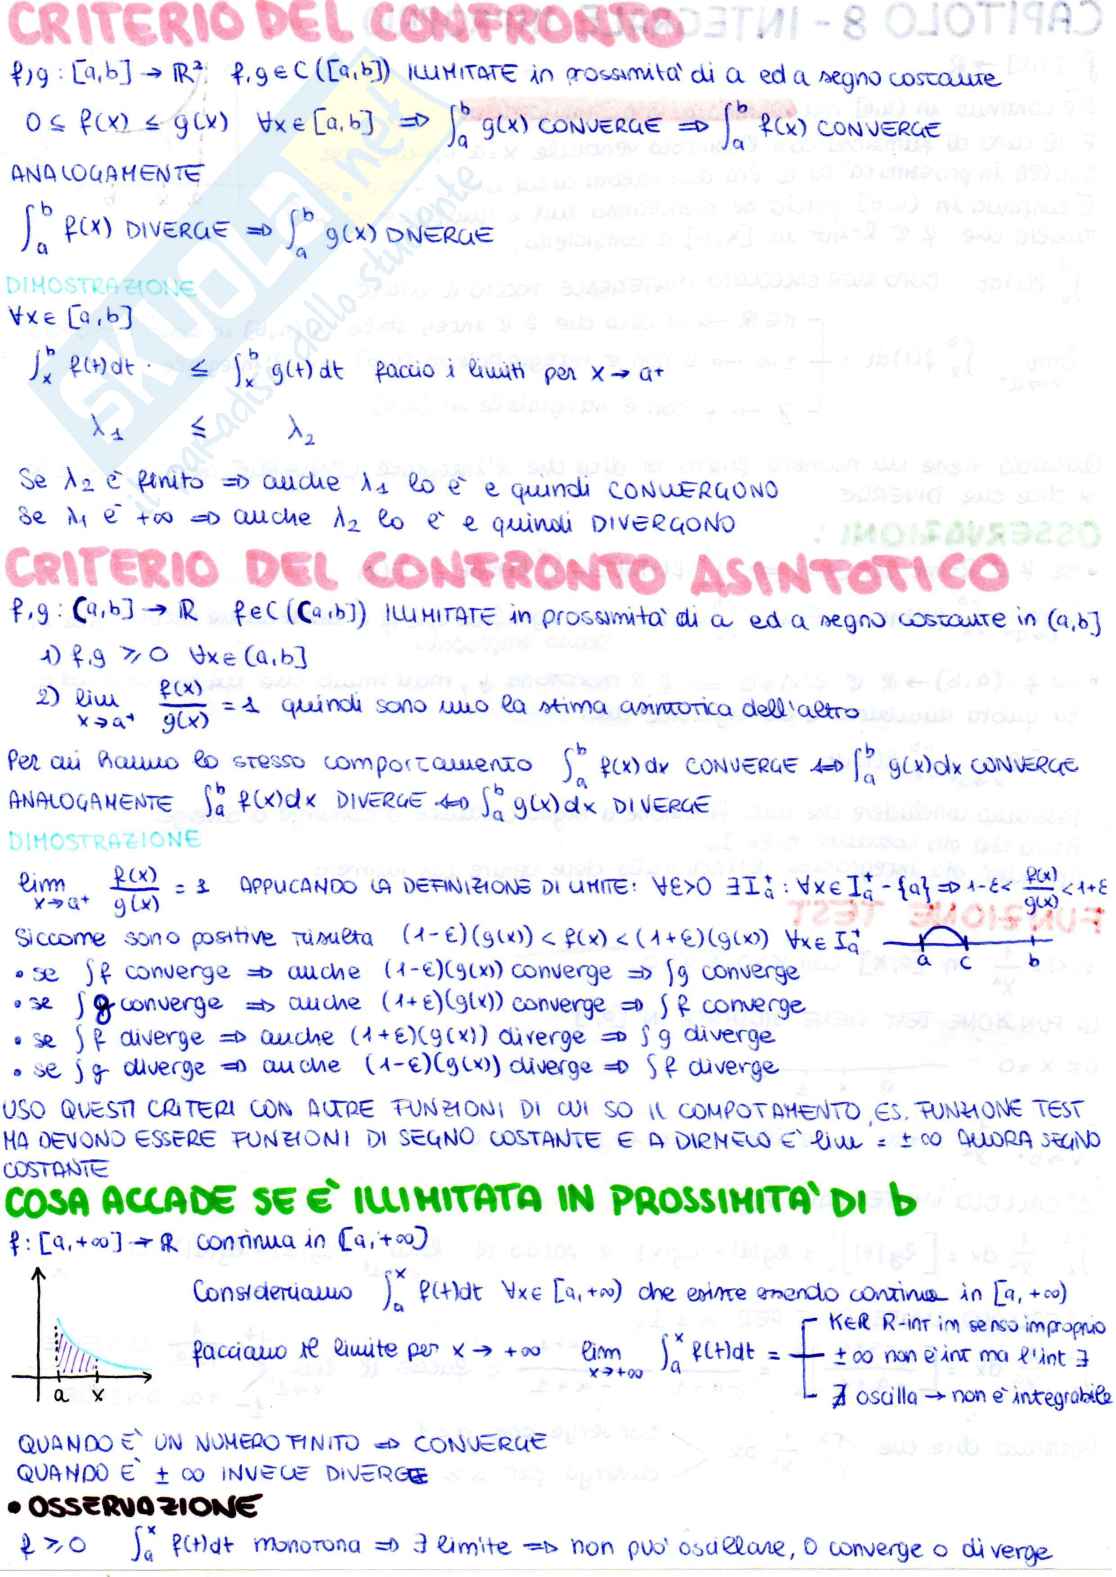 CRITERIO DEL CONFRONTO
f,g : [a,b] → R² f,g ∈ C([a,b]) ILLIMITATE in prossimità di a ed a segno costante
0 ≤ f(x) ≤ g(x) ∀x ∈ [a,b] ⇒ ∫_a^b g(x) CONVERGE ⇒ ∫_a^b f(x) CONVERGE
ANALOGAMENTE
∫_a^b f(x) DIVERGE ⇒ ∫_a^b g(x) DIVERGE
DIMOSTRAZIONE
∀x ∈ [a,b]
∫_x^b f(t)dt ≤ ∫_x^b g(t)dt faccio i limiti per x → a+
λ1 ≤ λ2
Se λ2 è finito ⇒ anche λ1 lo è e quindi CONVERGONO
Se λ1 è +∞ ⇒ anche λ2 lo è e quindi DIVERGONO
SKUOLA.net
il paradiso dello studente
CRITERIO DEL CONFRONTO ASINTOTICO
f,g : (a,b] → R f ∈ C((a,b]) ILLIMITATE in prossimità di a ed a segno costante in (a,b]
1) f,g ≥ 0 ∀x ∈ (a,b]
2) lim x→a+ f(x)/g(x) = 1 quindi sono uno la stima asintotica dell'altro
Per cui hanno lo stesso comportamento ∫_a^b f(x)dx CONVERGE ⇔ ∫_a^b g(x)dx CONVERGE
ANALOGAMENTE ∫_a^b f(x)dx DIVERGE ⇔ ∫_a^b g(x)dx DIVERGE
DIMOSTRAZIONE
lim x→a+ f(x)/g(x) = 1 APPLICANDO LA DEFINIZIONE DI LIMITE: ∀ε>0 ∃I_a^+ : ∀x∈I_a^+ - {a} ⇒ 1-ε < f(x)/g(x) < 1+ε
Siccome sono positive risulta (1-ε)(g(x)) < f(x) < (1+ε)(g(x)) ∀x∈ I_a^+ a c b
• se ∫f converge ⇒ anche (1-ε)(g(x)) converge ⇒ ∫g converge
• se ∫g converge ⇒ anche (1+ε)(g(x)) converge ⇒ ∫f converge
• se ∫f diverge ⇒ anche (1+ε)(g(x)) diverge ⇒ ∫g diverge
• se ∫g diverge ⇒ anche (1-ε)(g(x)) diverge ⇒ ∫f diverge
USO QUESTI CRITERI CON ALTRE FUNZIONI DI CUI SO IL COMPOTAMENTO, ES. FUNZIONE TEST
MA DEVONO ESSERE FUNZIONI DI SEGNO COSTANTE E A DIRMELO È lim = ±∞ ALLORA SEGNO
COSTANTE
COSA ACCADE SE È ILLIMITATA IN PROSSIMITÀ DI b
f: [a,+∞] → R continua in [a,+∞)
Consideriamo ∫_a^x f(t)dt ∀x∈ [a,+∞) che esiste essendo continua in [a,+∞)
facciamo il limite per x → +∞ lim x→+∞ ∫_a^x f(t)dt =
K∈R R-int im senso improprio
±∞ non è int ma l'int ∃
∄ oscilla → non è integrabile
a x
QUANDO È UN NUMERO FINITO ⇒ CONVERGE
QUANDO È ±∞ INVECE DIVERGE
• OSSERVAZIONE
f ≥ 0 ∫_a^x f(t)dt monotona ⇒ ∃ limite ⇒ non può oscillare, o converge o diverge